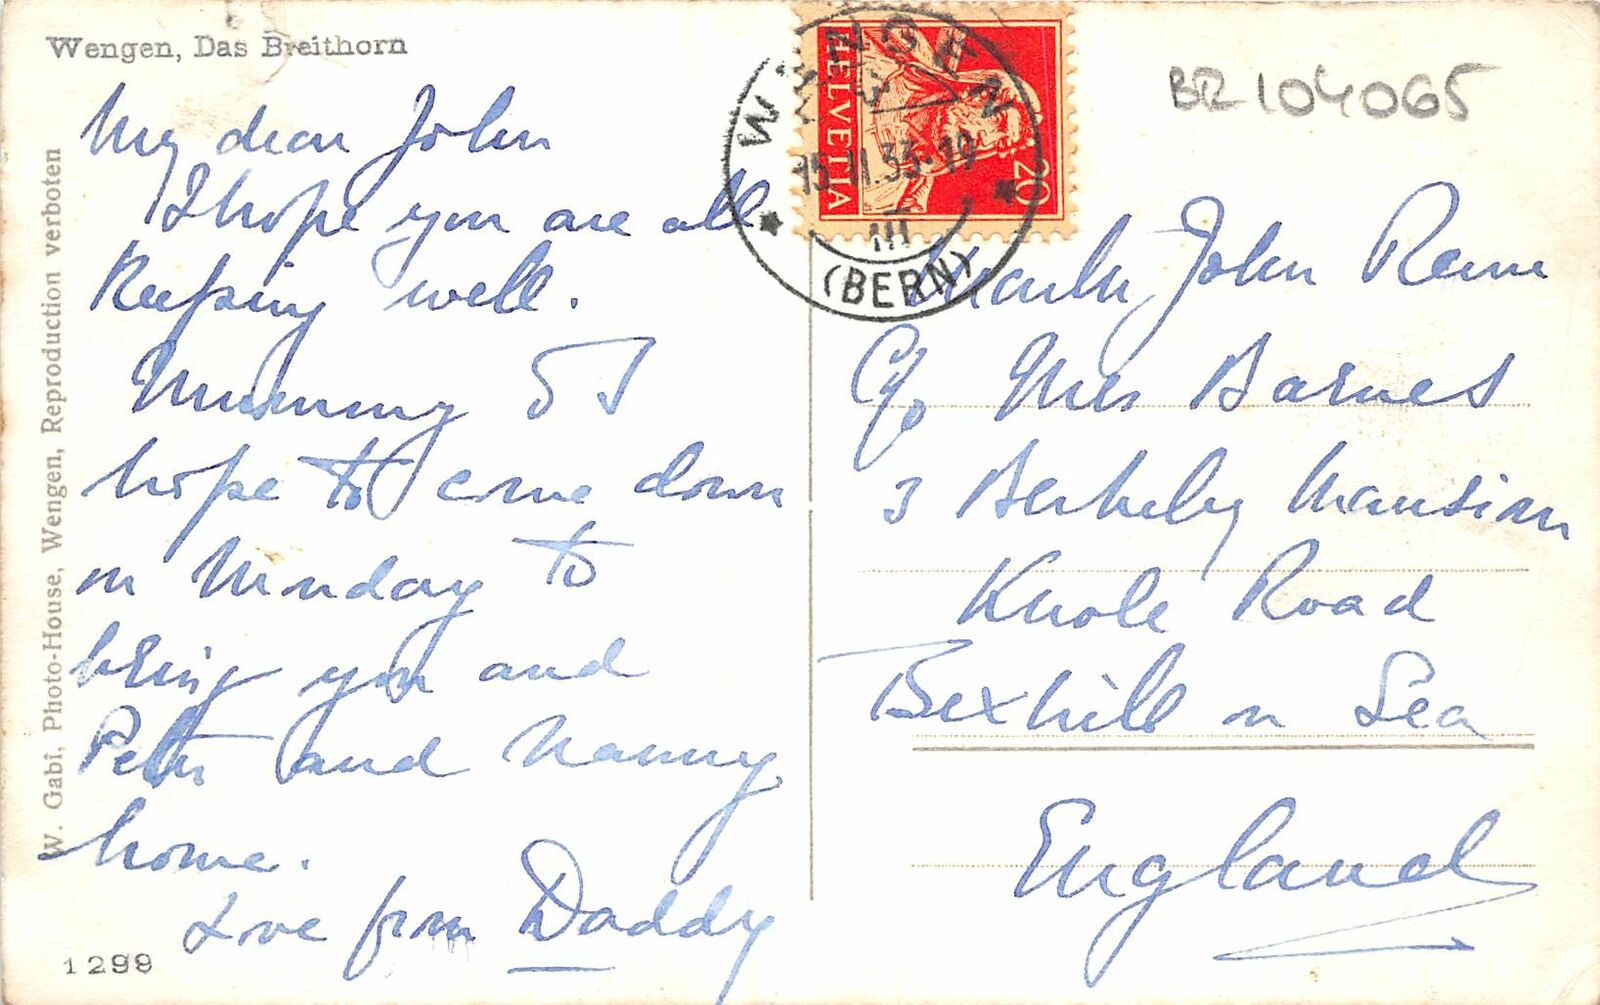 Wengen, Das Breithorn
My dear John
I hope you are all
Keeping well.
Mummy & I
hope to come down
on Monday to
bring you and
Peter and Nanny
home.
Love from Daddy
1299
W. Gabi, Photo-House, Wengen, Reproduction verboten
WENGEN
15.II.33-19
III
(BERN)
HELVETIA
20
BR 104065
John
C/o Mrs Barnes
3 Berkeley Mansion
Knole Road
Bexhill on Sea
England